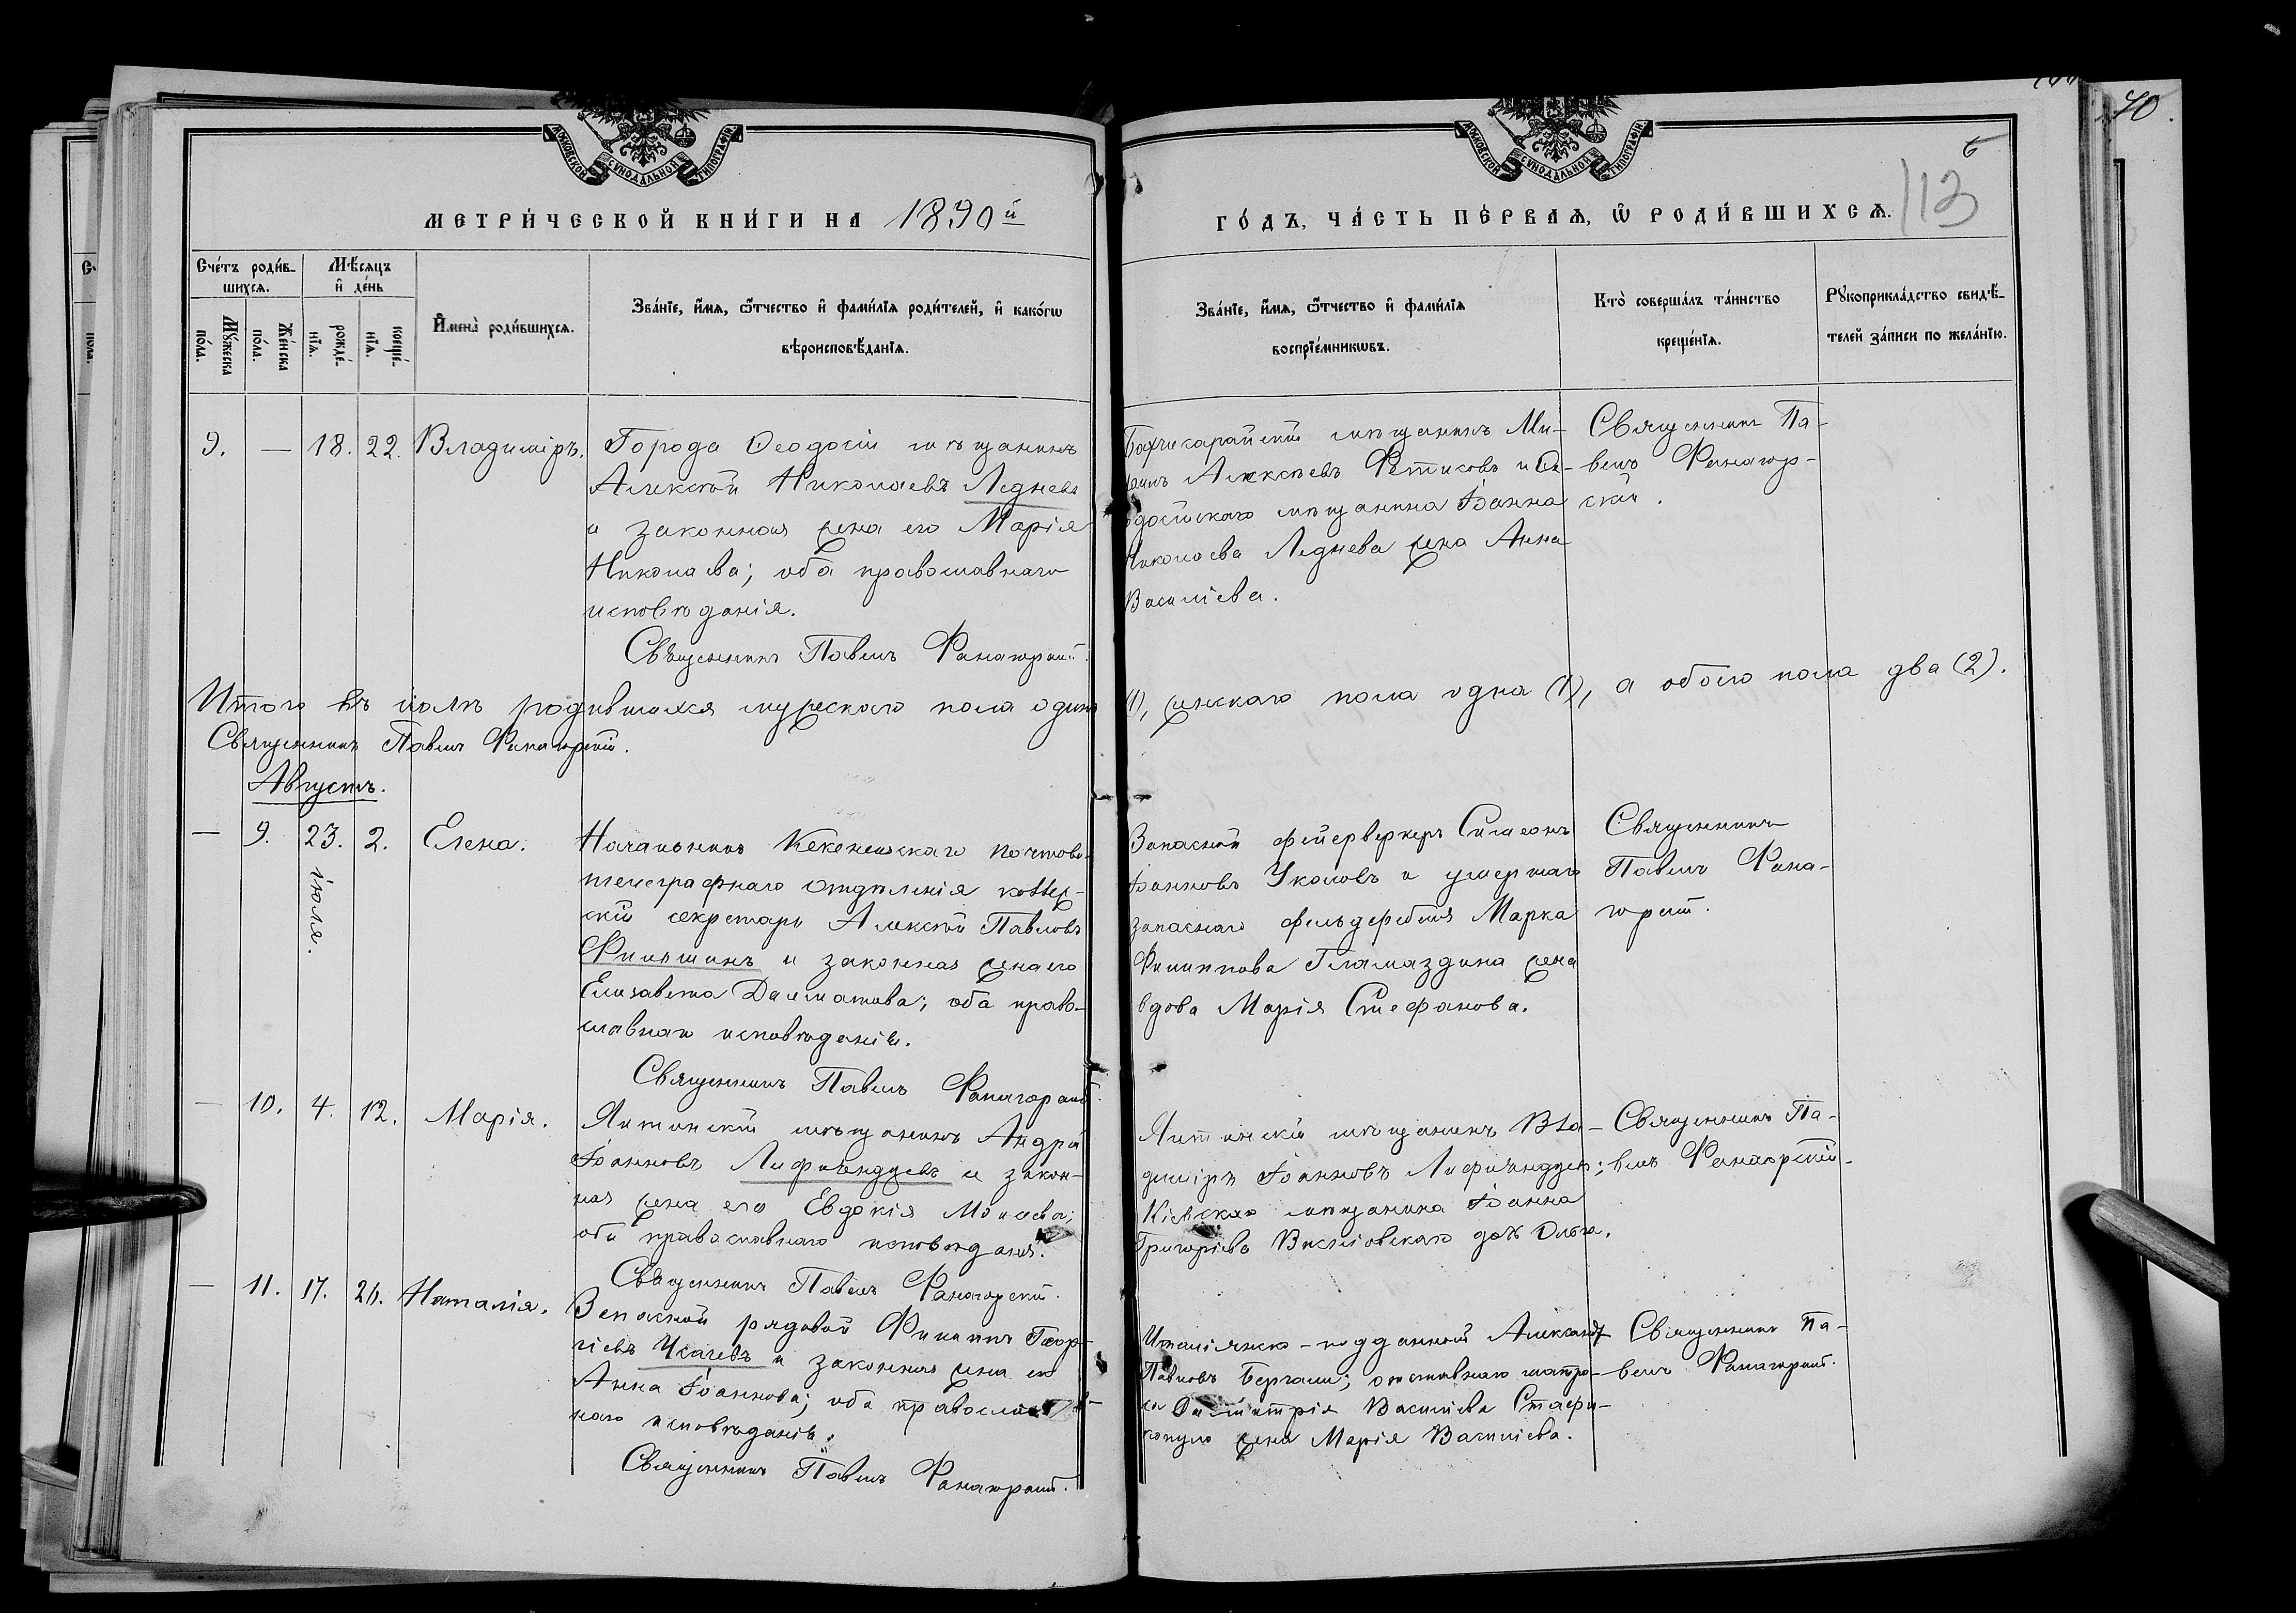 70.
6
113
МОСКОВСКОЙ СѴНОДАЛЬНОЙ ТИПОГРАФІИ
МОСКОВСКОЙ СѴНОДАЛЬНОЙ ТИПОГРАФІИ
МЕТРИ́ЧЕСКОЙ КНИ́ГИ НА 1890й
ГО́ДЪ, ЧА́СТЬ ПЕ́РВАѦ, Ѽ РОДИ́ВШИХСѦ.
Сче́тъ роди́в-
шихсѧ.
Мѣ́сѧцъ
и҆ де́нь
Мꙋ́жеска
по́ла.
Же́нска
по́ла.
рожде́-
нїѧ.
креще́-
нїѧ.
И҆мена̀ роди́вшихсѧ.
Зва́нїе, и҆́мѧ, ѻ҆́тчество и҆ фами́лїѧ роди́телей, и҆ како́гѡ
вѣроисповѣ́данїѧ.
Зва́нїе, и҆́мѧ, ѻ҆́тчество и҆ фами́лїѧ
воспрїе́мникѡвъ.
Кто̀ соверша́лъ та́инство
креще́нїѧ.
Рꙋкоприкла́дство свидѣ́-
телей за́писи по жела́нїю.
9. — 18. 22. Владиміръ.
Города Ѳеодосіи мѣщанинъ
Алексѣй Николаевъ Леднева
и законная жена его Марія
Николаева; оба православнаго
исповѣданія.
Священникъ Павелъ Фанагорскій.
Бахчисарайскій мѣщанинъ Ми-
хаилъ Алексѣевъ Фетисовъ и Ѳе-
одосійскаго мѣщанина Іоанна
Николаева Леднева жена Анна
Василіева.
Священникъ Па-
велъ Фанагор-
скій.
Итого въ іюлѣ родившихся мужескаго пола одинъ (1), женскаго пола одна (1), а обоего пола два (2).
Священникъ Павелъ Фанагорскій.
Августъ.
— 9. 23. іюля. 2. Елена.
Начальникъ Кекенеизскаго почтово-
телеграфнаго отдѣленія коллеж-
скій секретарь Алексѣй Павловъ
Филошинъ и законная жена его
Елизавета Далматова; оба право-
славнаго исповѣданія.
Священникъ Павелъ Фанагорскій.
Запасной фейерверкеръ Симеонъ
Іоанновъ Уколовъ и умершаго
запаснаго фельдфебеля Марка
Филиппова Гламаздина жена
вдова Марія Стефанова.
Священникъ
Павелъ Фана-
горскій.
— 10. 4. 12. Марія.
Ялтинскій мѣщанинъ Андрей
Іоанновъ Лафицндцевъ и закон-
ная жена его Евдокія Моисеева;
оба православнаго исповѣданія.
Священникъ Павелъ Фанагорскій.
Ялтинскій мѣщанинъ Вла-
диміръ Іоанновъ
Кіевскаго мѣщанина Іоанна
Григоріева Висловскаго дочь Ольга.
Священникъ Па-
велъ Фанагорскій.
— 11. 17. 26. Наталія.
Запасной рядовой Филиппъ Геор-
гіевъ Усачевъ и законная жена его
Анна Іоаннова; оба православ-
наго исповѣданія.
Священникъ Павелъ Фанагорскій.
Италіянско-подданный Александръ
Павловъ Бергами; отставнаго матро-
са Димитрія Василіева Стафи-
копуло жена Марія Василіева.
Священникъ Па-
велъ Фанагорскій.